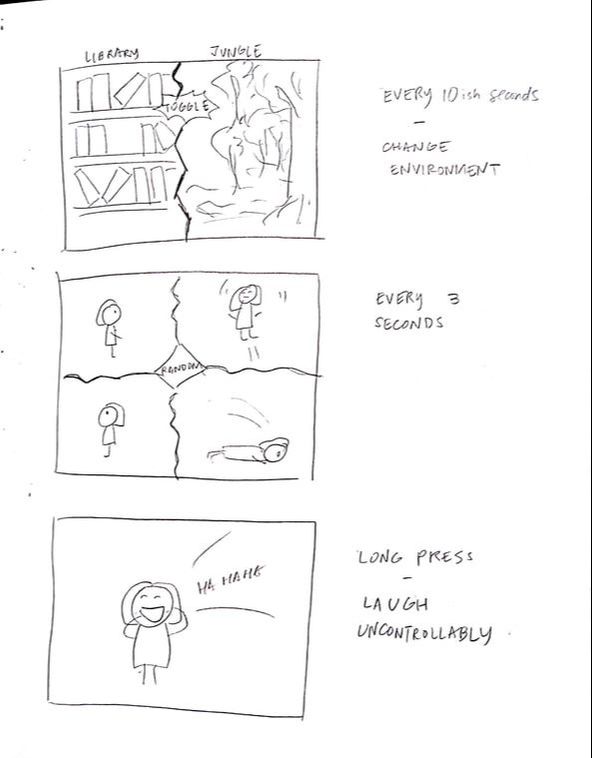 LIBRARY
JUNGLE
TOGGLE
EVERY 10ish seconds
-
CHANGE
ENVIRONMENT
RANDOM
EVERY 3
SECONDS
HA HAHA
LONG PRESS
-
LAUGH
UNCONTROLLABLY.